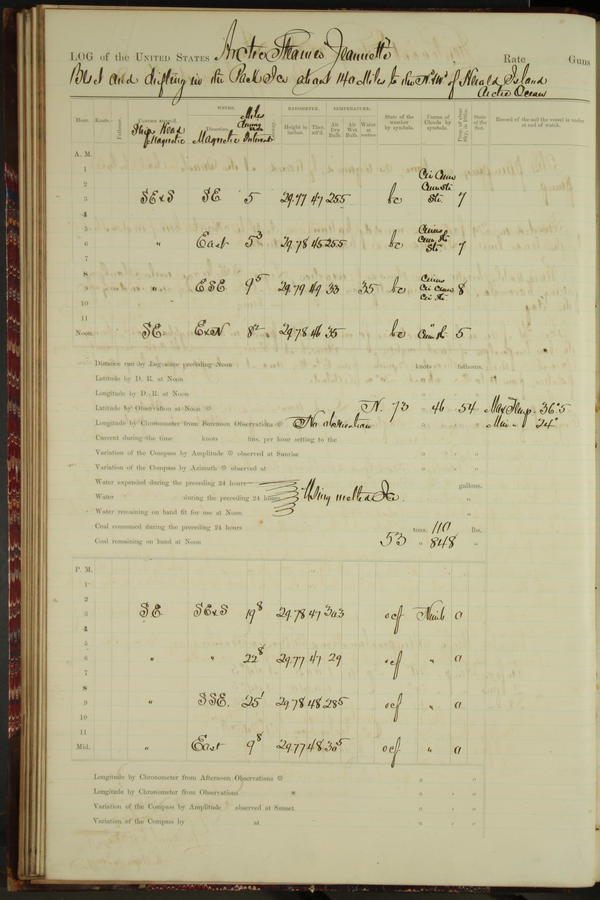 LOG of the UNITED STATES Arctic Steamer Jeannette Rate Guns
Beset and drifting in the Pack Ice about 140 Miles to the Nd Wd of Herald Island
Arctic Ocean
Hour. Knots. Fathoms. Courses steered. WINDS. BAROMETER. TEMPERATURE. State of the weather by symbols. Forms of Clouds by symbols. Prop. of clear sky, in 10ths. State of the Sea. Record of the sail the vessel is under at end of watch.
Ship's Head Magnetic Direction. Magnetic Miles Height in inches. Ther. att'd Air Dry Bulb. Air Wet Bulb. Water at surface.
A. M.
1
2
3 SE x S SE 5 29.77 47 25.5 bc Ci Cum Cum Sti Sti 7
4
5
6 " East 5 3 29.78 45 25.5 bc Cum Cum Sti Sti 7
7
8
9 " ESE 9 5 29.79 49 33 35 bc Cum Ci Cum Ci Sti 8
10
11
Noon. SE ExN 29.78 46 35 bc Cum Sti 5
Distance run by Log since preceding Noon knots fathoms.
Latitude by D. R. at Noon
Longitude by D. R. at Noon
Latitude by Observation at Noon N. 73 46 54 Max Temp. 36°5
Longitude by Chronometer from Forenoon Observations No observation Min " 24°
Current during the time knots fms. per hour setting to the
Variation of the Compass by Amplitude observed at Sunrise
Variation of the Compass by Azimuth observed at
Water expended during the preceding 24 hours gallons.
Water during the preceding 24 hours Using melted Ice. "
Water remaining on hand fit for use at Noon "
Coal consumed during the preceding 24 hours tons. 110 lbs.
Coal remaining on hand at Noon 53 " 848 "
P. M.
1
2
3 SE SE x S 19 8 29.78 47 30.3 ocf Nimb 0
4
5
6 " " 22 8 29.77 47 29 ocf " 0
7
8
9 " SSE. 25 1 29.78 48 28.5 ocf " 0
10
11
Mid. " East 9 8 29.77 48 30.5 ocf " 0
Longitude by Chronometer from Afternoon Observations
Longitude by Chronometer from Observations
Variation of the Compass by Amplitude observed at Sunset
Variation of the Compass by at